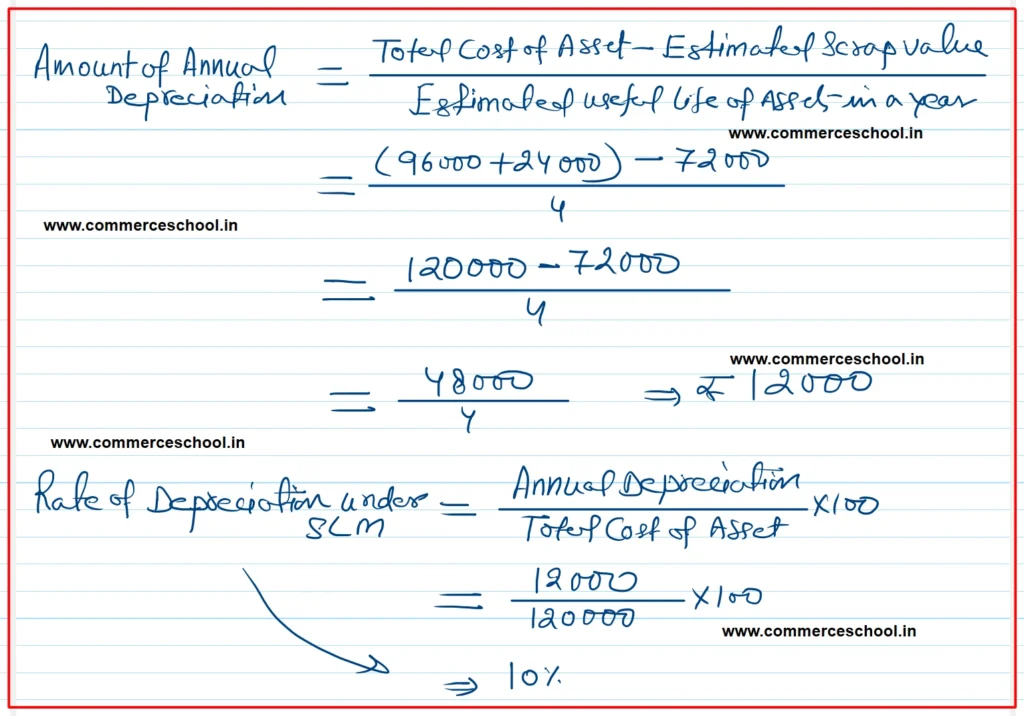 Amount of Annual Depreciation = Total Cost of Asset - Estimated Scrap value
Estimated useful life of Assets in a year
www.commerceschool.in
= (96000 + 24000) - 72000
4
www.commerceschool.in
= 120000 - 72000
4
www.commerceschool.in
= 48000 ⇒ ₹ 12000
4
www.commerceschool.in
Rate of Depreciation under SLM = Annual Depreciation
Total Cost of Asset × 100
= 12000
120000 × 100
www.commerceschool.in
⇒ 10%